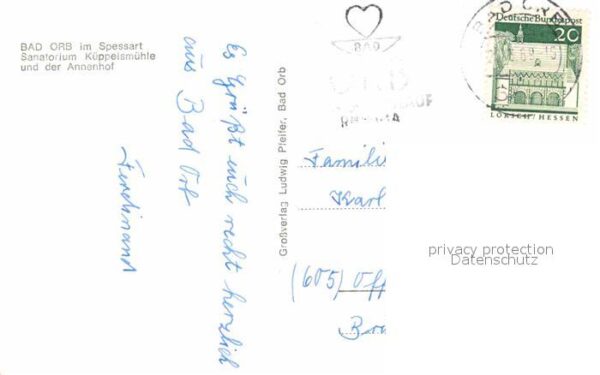 BAD ORB im Spessart
Sanatorium Küppelsmühle
und der Annenhof
Es Grüßt euch recht herzlich
aus Bad Orb
Ferdinand
Großverlag Ludwig Pfeifer, Bad Orb
BAD
BAD ORB
Deutsche Bundespost
20
LORSCH/HESSEN
Famili
Karl
(605) Off
privacy protection
Datenschutz